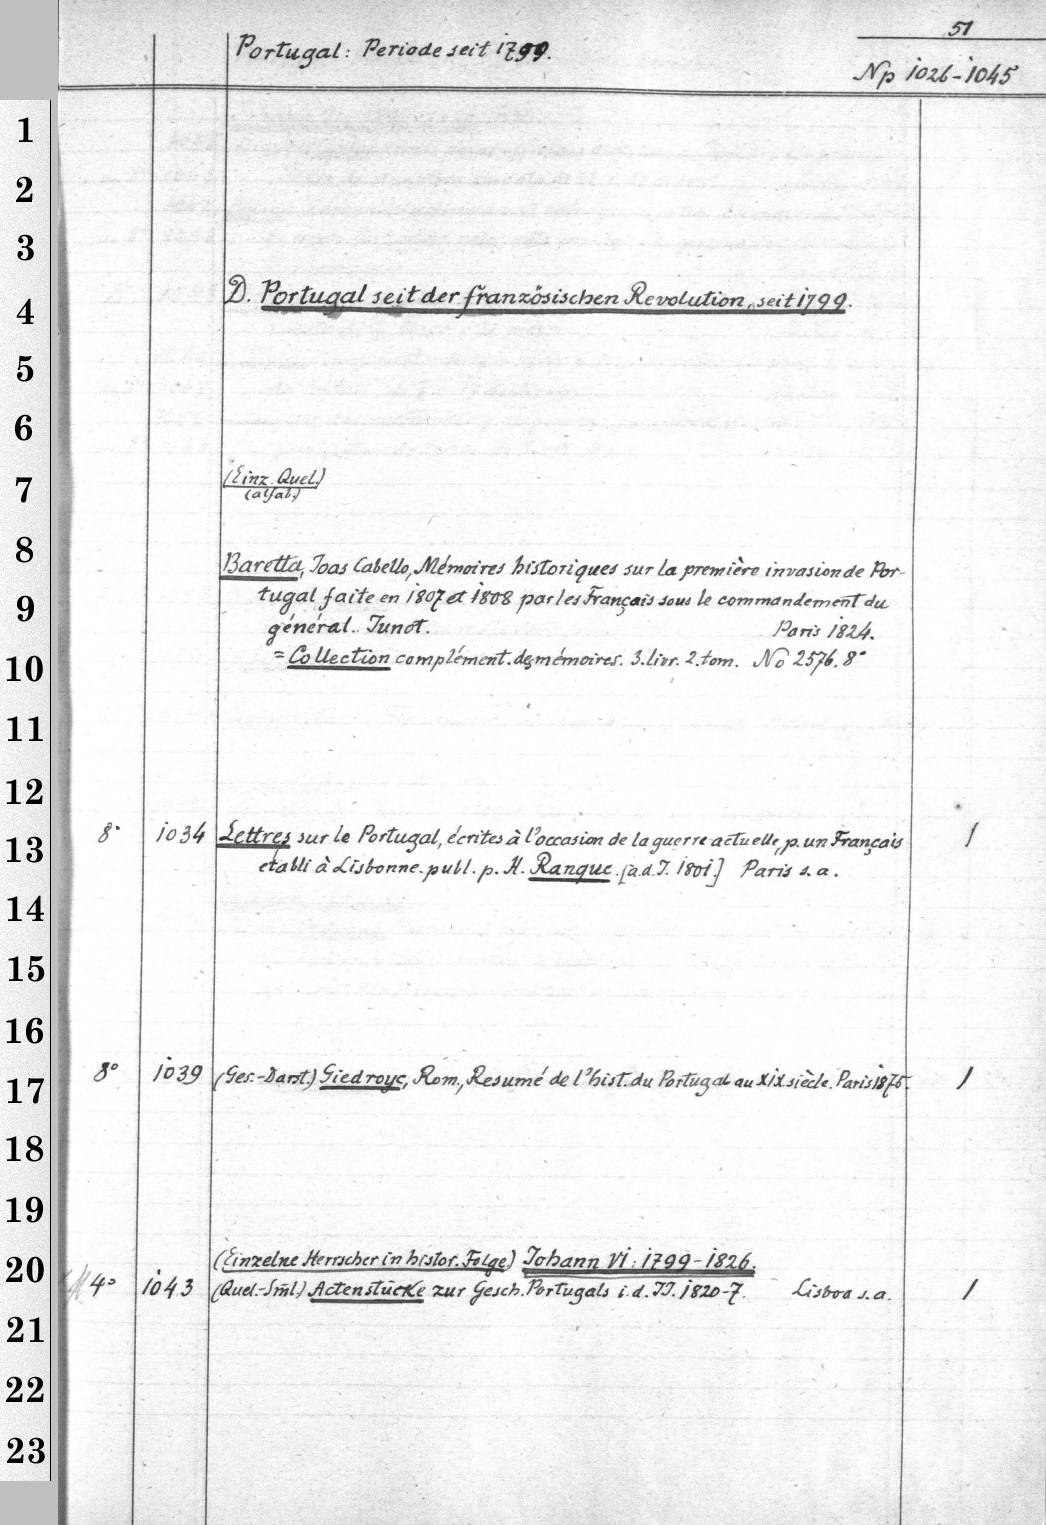 51
Portugal: Periode seit 1799.
Np 1026-1045
1
2
3
D. Portugal seit der französischen Revolution, seit 1799.
4
5
6
(Einz. Quel.)
7
(alfab.)
8
Baretta, Joas Cabello, Mémoires historiques sur la première invasion de Por-
9
tugal faite en 1807 et 1808 par les Français sous le commandement du
général. Junot. Paris 1824.
10
= Collection complément. des mémoires. 3. livr. 2. tom. No 2576. 8°
11
12
13
8° 1034 Lettres sur le Portugal, écrites à l'occasion de la guerre actuelle, p. un Français 1
établi à Lisbonne. publ. p. H. Ranque. [a.d.J. 1801.] Paris s. a.
14
15
16
17
8° 1039 (Ges.-Darst.) Giedroyc, Rom., Resumé de l'hist. du Portugal au XIX siècle. Paris 1875. 1
18
19
20
(Einzelne Herrscher in histor. Folge) Johann VI: 1799-1826.
4° 1043 (Quel.-Sml.) Actenstücke zur Gesch. Portugals i. d. JJ. 1820-7. Lisboa s. a. 1
21
22
23